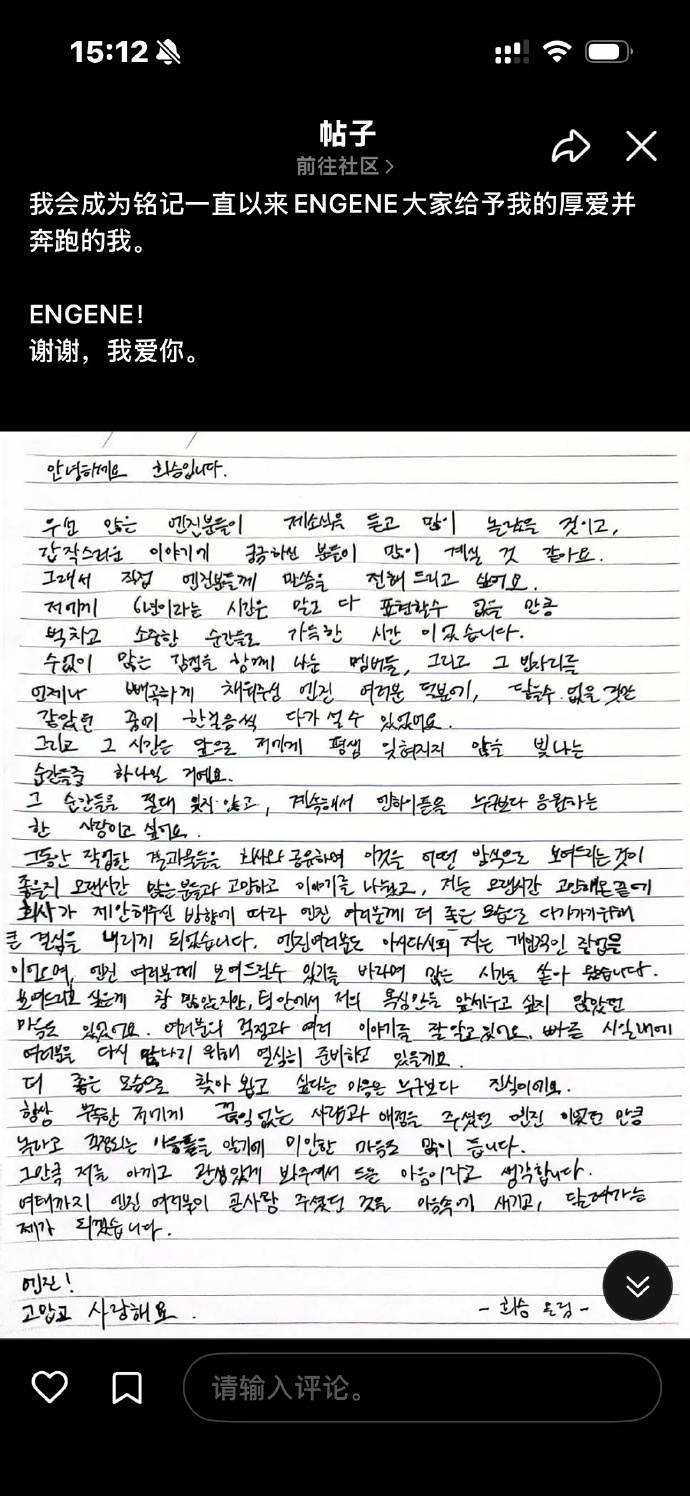 15:12
帖子
前往社区 >
我会成为铭记一直以来ENGENE大家给予我的厚爱并
奔跑的我。
ENGENE!
谢谢，我爱你。
안녕하세요 희승입니다.
우선 많은 엔진분들이 제소식을 듣고 많이 놀랐을 것이고,
갑작스러운 이야기에 궁금하실 분들이 많이 계실 것 같아요.
그래서 직접 엔진분들께 말씀을 전해 드리고 싶어요.
저에게 6년이라는 시간은 말로 다 표현할수 없을 만큼
벅차고 소중한 순간들로 가득한 시간 이었습니다.
수없이 많은 감정을 함께 나눈 멤버들, 그리고 그 빈자리를
언제나 빼곡하게 채워주신 엔진 여러분 덕분에, 닿을수 없을 것만
같았던 꿈에 한걸음씩 다가 설 수 있었어요.
그리고 그 시간은 앞으로 저에게 평생 잊혀지지 않을 빛나는
순간들중 하나일 거에요.
그 순간들을 절대 잊지 않고, 계속해서 엔하이픈을 누구보다 응원하는
한 사람이고 싶어요.
그동안 작업한 결과물들을 회사와 공유하며 이것을 어떤 방식으로 보여드리는 것이
좋을지 오랜시간 많은분들과 고민하고 이야기를 나눴고, 저는 오랜시간 고민해온끝에
회사가 제안해주신 방향에 따라 엔진 여러분께 더 좋은 모습으로 다가가기위해
큰 결심을 내리게 되었습니다. 엔진여러분도 아시다시피 저는 개인적인 작업을
이어오며, 엔진 여러분께 보여드릴수 있기를 바라며 많은 시간을 쏟아 왔습니다.
보여드리고 싶은게 참 많았지만, 팀 안에서 저의 욕심만을 앞세우고 싶지 않았던
마음도 있었어요. 여러분의 걱정과 여러 이야기를 잘 알고 있어요. 빠른 시일내에
여러분을 다시 만나기 위해 열심히 준비하고 있을게요.
더 좋은 모습으로 찾아 뵙고 싶다는 마음은 누구보다 진심이에요.
항상 부족한 저에게 끊임없는 사랑과 애정을 주셨던 엔진 이었던 만큼
놀라고 걱정되는 마음들을 알기에 미안한 마음도 많이 듭니다.
그만큼 저를 아끼고 관심있게 봐주셔서 드는 마음이라고 생각합니다.
여태까지 엔진 여러분이 큰사랑 주셨던 것을 마음속에 새기고, 달려가는
제가 되겠습니다.
엔진!
고맙고 사랑해요.
- 희승 올림 -
请输入评论。